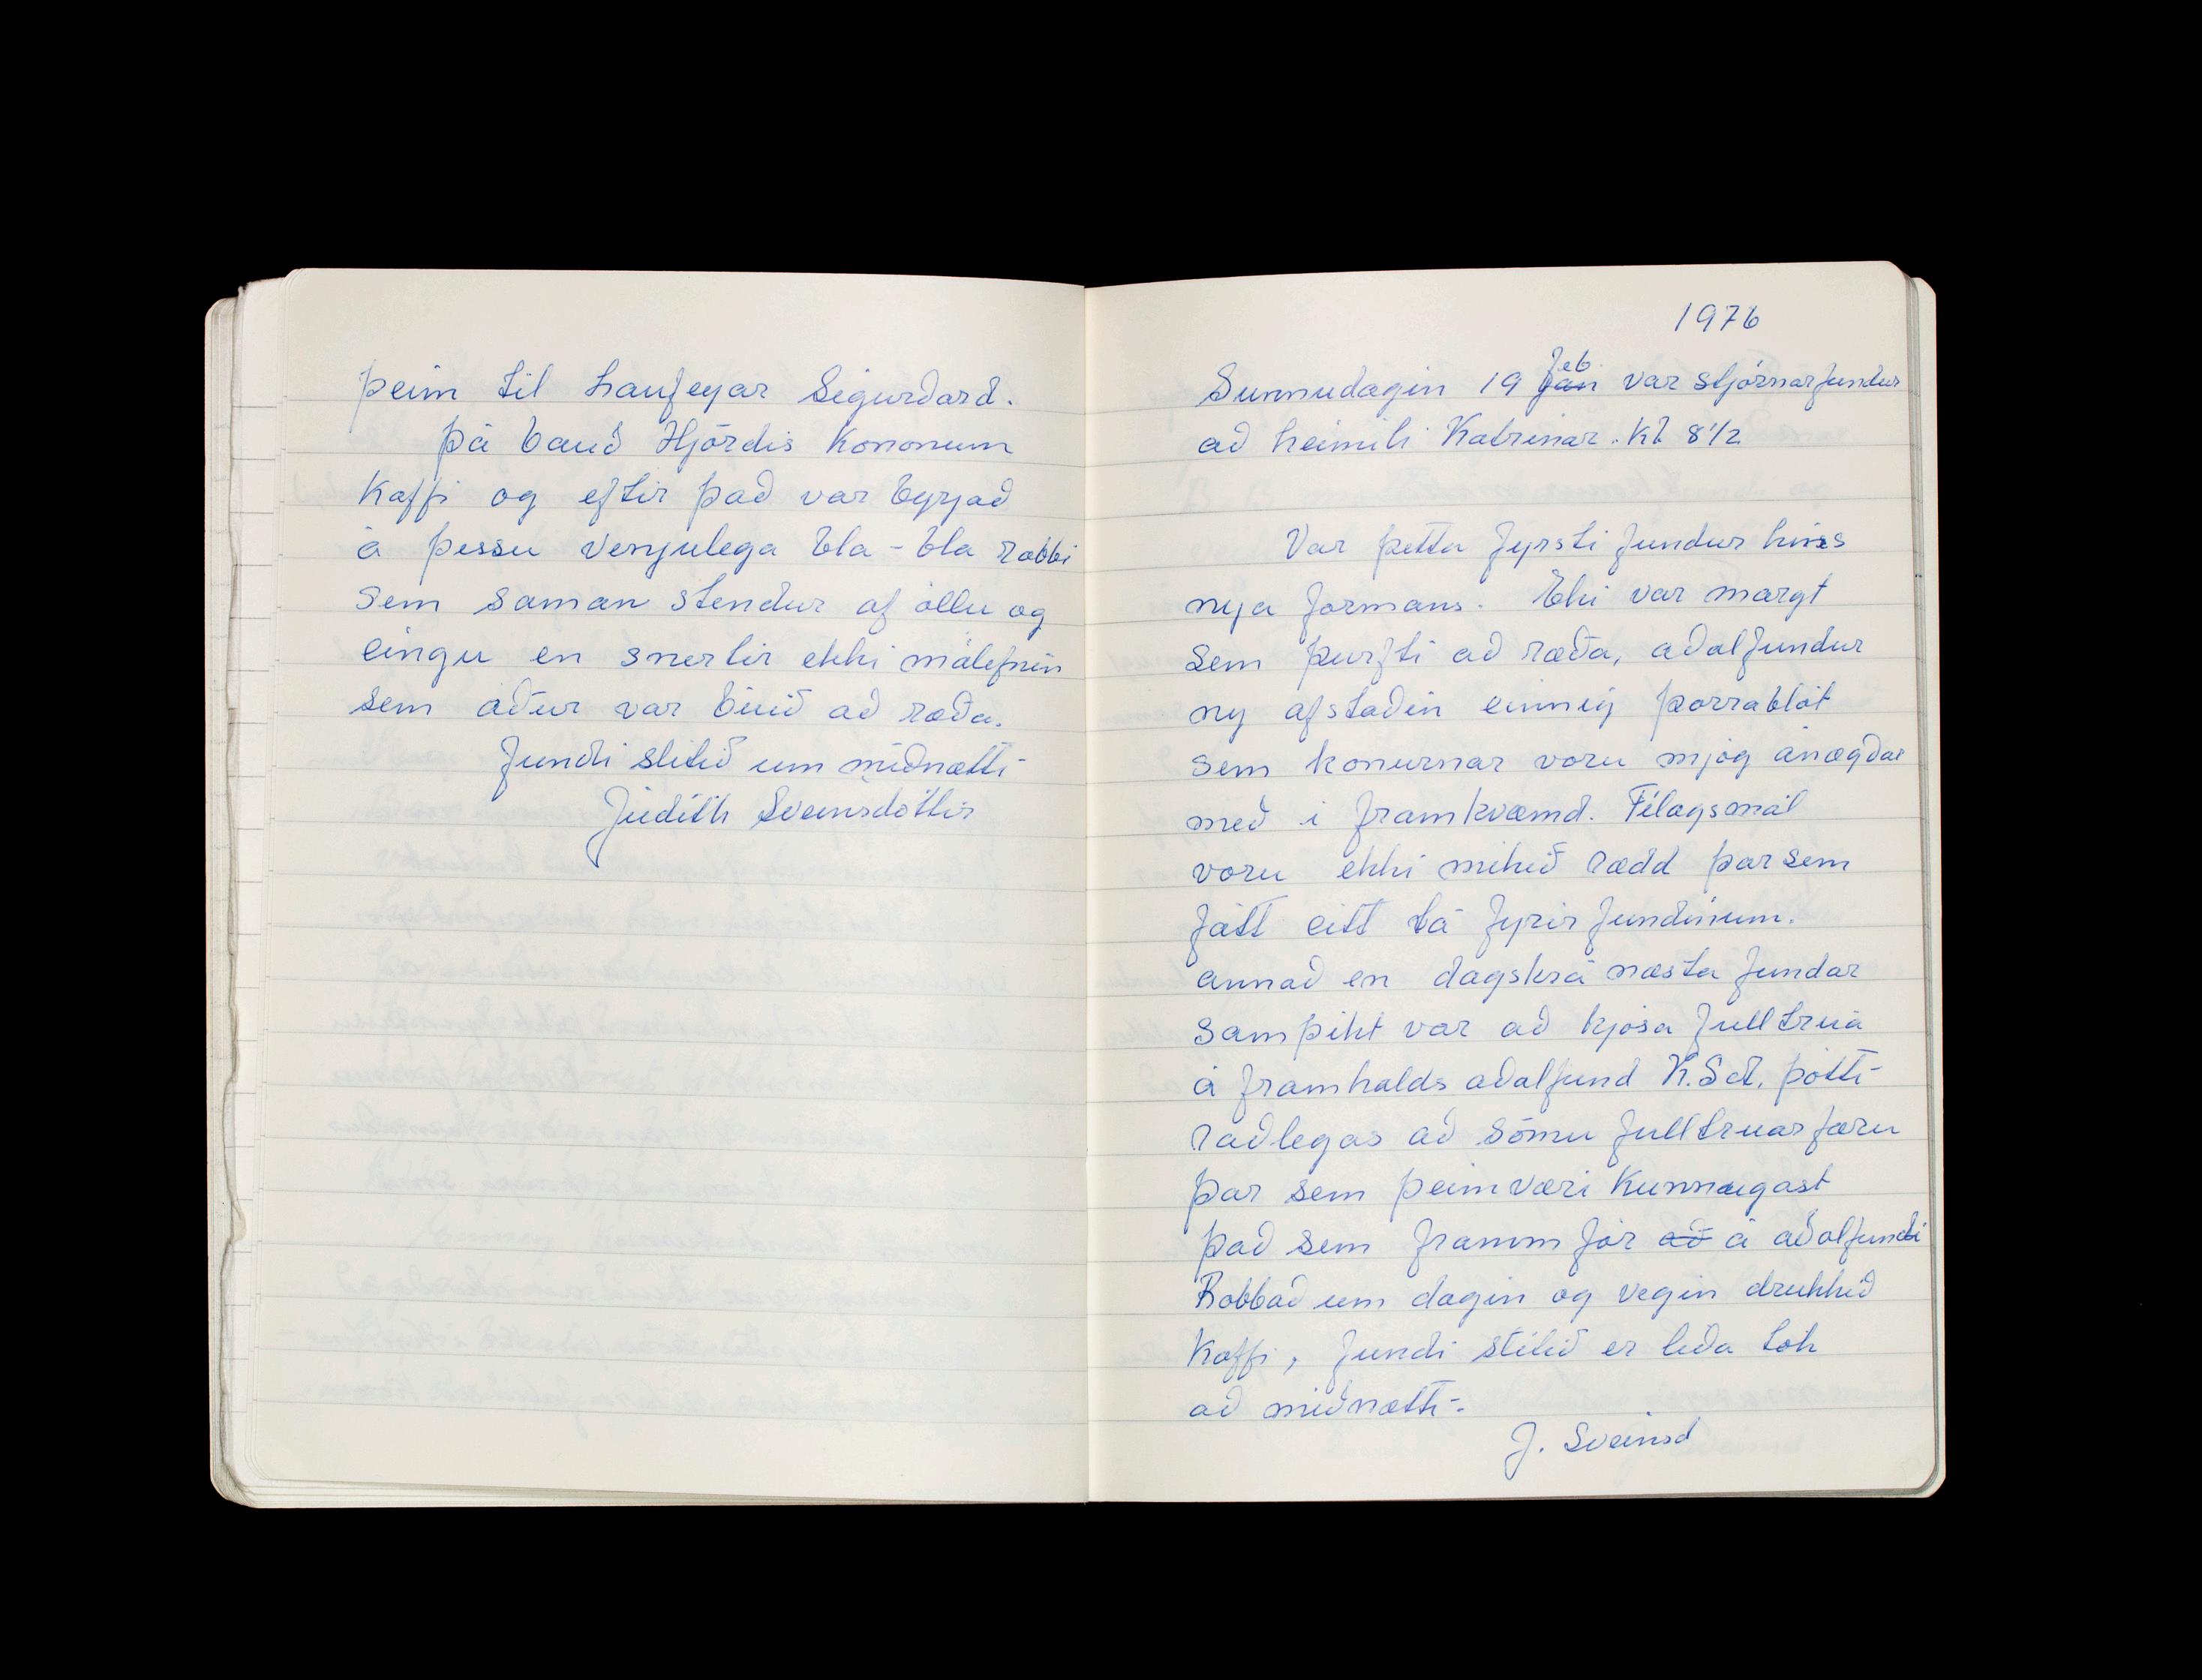 þeim til Laufeyar Sigurðard.
Þá bauð Hjördis Kononum
Kaffi og eftir það var byrjað
á þessu venjulega bla-bla rabbi
sem saman stendur af öllu og
eingu en snertir ekki málefnin
sem aður var búið að ræða.
Fundi slitið um miðnætti
Júdith Sveinsdóttir
1976
Feb
Sunnudagin 19 Jan var stjórnarfundur
að heimili Katrinar. Kl 8 1/2
Var þetta fyrsti fundur hins
nyja formans. Ekki var margt
sem þurfti að ræða, aðalfundur
ny afstaðin einnig þorrablót
sem konurnar voru mjög ánægðar
með i framkvæmd. Félagsmál
voru ekki mikið rædd þar sem
fátt eitt lá fyrir fundinum.
annað en dagskrá næsta fundar
Samþikt var að kjósa fulltrúa
á framhalds aðalfund K.Sd. þótti
Raðlegas að sömu fulltruar færu
þar sem þeim væri Kunnugast
það sem framm fór að á aðalfundi
Rabbað um dagin og vegin drukkið
Kaffi, fundi slitið er liða tók
að miðnætti.
J. Sveinsd